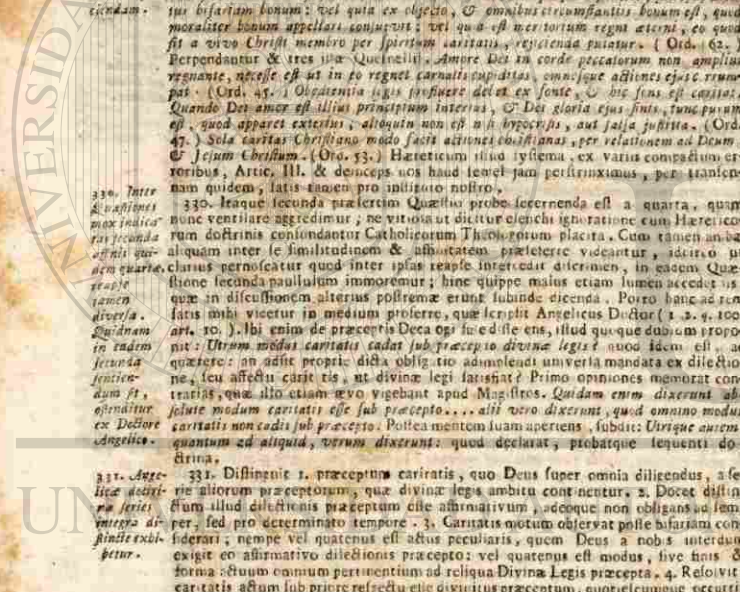 ciendam.
tur bifariam bonum: vel quia ex objecto, & omnibus circumstantiis bonum est, quod
moraliter bonum appellari consuevit: vel quia est meritorium regni æterni, eo quod
fit a vivo Christi membro per spiritum caritatis, rejicienda putatur. (Ord. 62.)
Perpendantur & tres istæ Quesnelii. Amore Dei in corde peccatorum non amplius
regnante, necesse est ut in eo regnet carnalis cupiditas, omnesque actiones ejus corrum-
pat. (Ord. 45.) Obedientia legis profluere debet ex fonte, & hic fons est caritas.
Quando Dei amor est illius principium interius, & Dei gloria ejus finis, tunc purum
est, quod apparet exterius; alioquin non est nisi hypocrisis, aut falsa justitia. (Ord.
47.) Sola caritas Christiano modo facit actiones christianas, per relationem ad Deum,
& Jesum Christum. (Ord. 53.) Hæreticum istud systema, ex variis compactum er-
roribus, Artic. III. & deinceps nos haud semel jam perstrinximus, per transen-
nam quidem, satis tamen pro instituto nostro.
330. Inter
Quæstiones
mox indica-
tas secunda
affinis qui-
dem quartæ,
reapse
tamen
diversa.
Quidnam
in eadem
secunda
sentien-
dum sit,
ostenditur
ex Doctore
Angelico.
330. Itaque secunda præsertim Quæstio probe secernenda est a quarta, quam
nunc ventilare aggredimur; ne vitiosa ut dicitur elenchi ignoratione cum Hæretico-
rum doctrinis confundantur Catholicorum Theologorum placita. Cum tamen ambæ
aliquam inter se similitudinem & affinitatem præseferre videantur, idcirco ut
clarius pernoscatur quod inter ipsas reapse intercedit discrimen, in eadem Quæ-
stione secunda paullulum immoremur; hinc quippe maius etiam lumen accedet iis
quæ in discussionem alterius postremæ erunt subinde dicenda. Porro hanc ad rem
satis mihi videtur in medium proferre, quæ scripsit Angelicus Doctor (1. 2. q. 100.
art. 10.). Ibi enim de præceptis Decalogi fuse disserens, istud quoque dubium propo-
nit: Utrum modus caritatis cadat sub præcepto divinæ legis? quod idem est, ac
quærere: an adsit proprie dicta obligatio adimplendi universa mandata ex dilectio-
ne, seu affectu caritatis, ut divinæ legi satisfiat? Primo opiniones memorat con-
trarias, quæ illo etiam ævo vigebant apud Magistros. Quidam enim dixerunt ab-
solute modum caritatis esse sub præcepto.... alii vero dixerunt, quod omnino modus
caritatis non cadit sub præcepto: Postea mentem suam aperiens, subdit: Utrique autem
quantum ad aliquid, verum dixerunt: quod declarat, probatque sequenti do-
ctrina.
331. Ange-
licæ doctri-
næ series
integra di-
stincte exhi-
betur.
331. Distinguit 1. præceptum cariratis, quo Deus super omnia diligendus, a se-
rie aliorum præceptorum, quæ divinæ legis ambitu continentur. 2. Docet distin-
ctum illud dilectionis præceptum esse affirmativum, adeoque non obligans ad sem-
per, sed pro determinato tempore. 3. Caritatis motum observat posse bifariam con-
siderari; nempe vel quatenus est actus peculiaris, quem Deus a nobis interdum
exigit eo affirmativo dilectionis præcepto: vel quatenus est modus, sive finis &
forma actuum omnium pertinentium ad reliqua Divinæ Legis præcepta. 4. Resolvit
caritatis actum sub priore respectu esse divinitus præceptum, quotiescumque occurrit